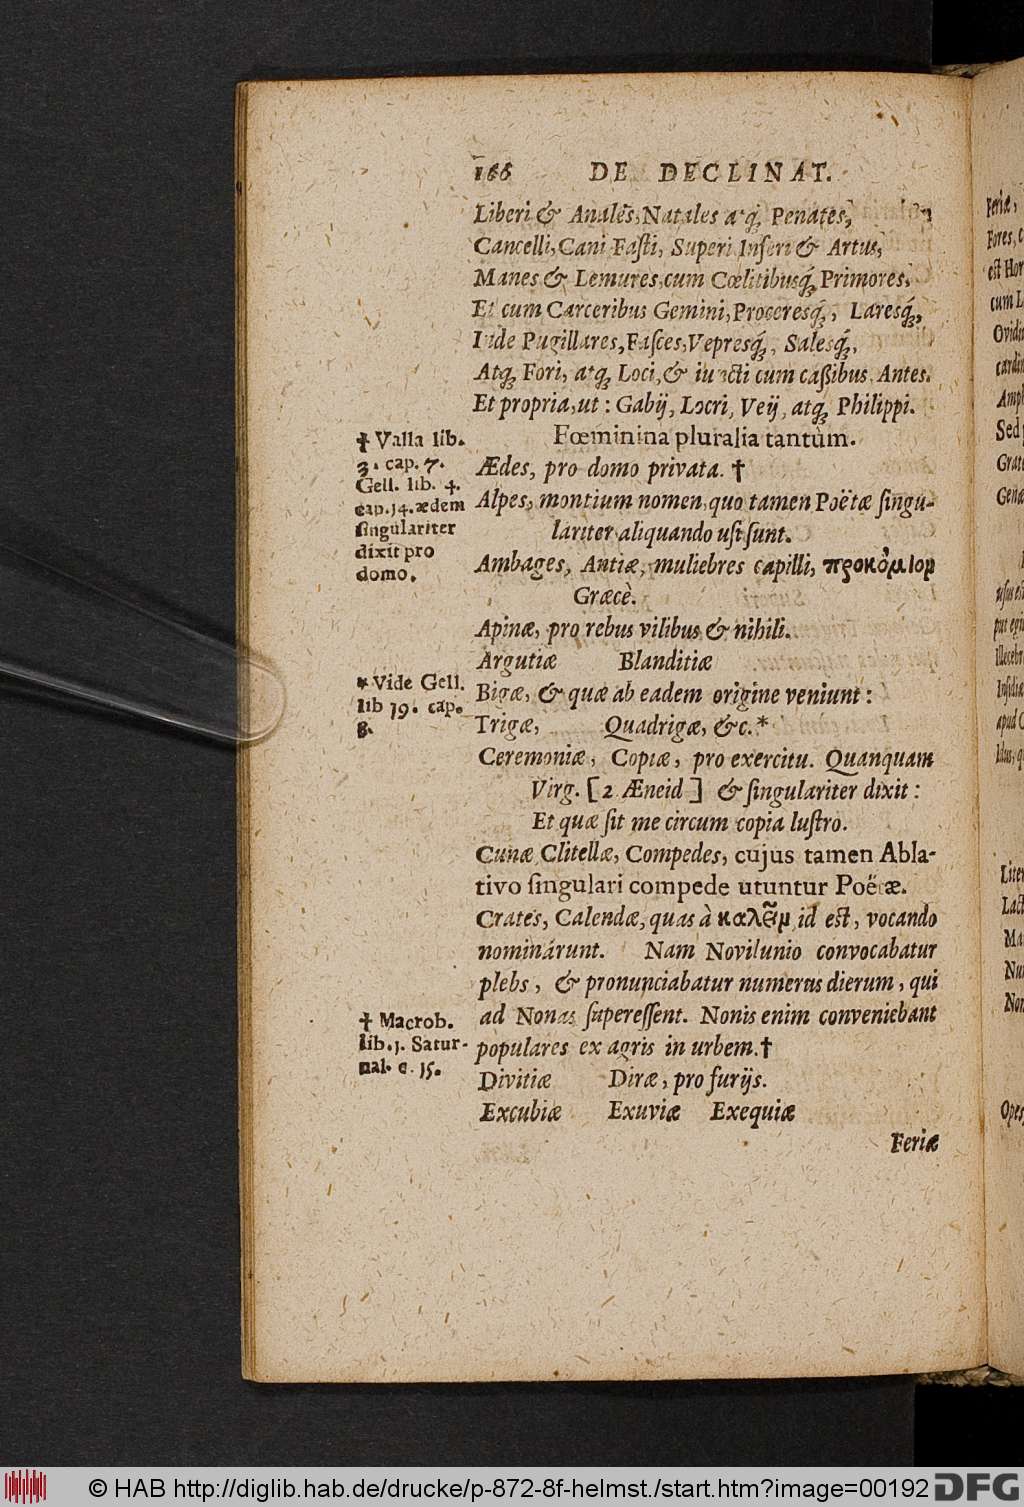 166 DE DECLINAT.
Liberi & Anales, Natales atq́; Penates,
Cancelli, Cani Fasti, Superi Inferi & Artus,
Manes & Lemures, cum Cœlitibusq́; Primores.
Et cum Carceribus Gemini, Proceresq́;, Laresq́;,
Inde Pugillares, Fasces, Vepresq́;, Salesq́;,
Atq; Fori, atq; Loci, & iuncti cum caßibus Antes.
Et propria, ut: Gabij, Locri, Veij, atq; Philippi.
Fœminina pluralia tantùm.
Ædes, pro domo privata. †
Alpes, montium nomen, quo tamen Poëtæ singu-
lariter aliquando usi sunt.
Ambages, Antiæ, muliebres capilli, προκόμιομ
Græcè.
Apinæ, pro rebus vilibus & nihili.
Argutiæ Blanditiæ
Bigæ, & quæ ab eadem origine veniunt:
Trigæ, Quadrigæ, &c.*
Ceremoniæ, Copiæ, pro exercitu. Quanquam
Virg. [2 Æneid] & singulariter dixit:
Et quæ sit me circum copia lustro.
Cunæ Clitellæ, Compedes, cujus tamen Abla-
tivo singulari compede utuntur Poëtæ.
Crates, Calendæ, quas à καλεῖμ id est, vocando
nominárunt. Nam Novilunio convocabatur
plebs, & pronunciabatur numerus dierum, qui
ad Nonas superessent. Nonis enim conveniebant
populares ex agris in urbem.†
Divitiæ Diræ, pro furijs.
Excubiæ Exuviæ Exequiæ
Feriæ
† Valla lib.
3. cap. 7.
Gell. lib. 4.
cap. 14. ædem
singulariter
dixit pro
domo.
* Vide Gell.
lib 19. cap.
8.
† Macrob.
lib. 1. Satur-
nal. c. 15.
Feriæ,
Fores,
est Hor
cum L
Ovidiu
cardin
Amph
Sed
Grate
Genæ
© HAB http://diglib.hab.de/drucke/p-872-8f-helmst./start.htm?image=00192
DFG